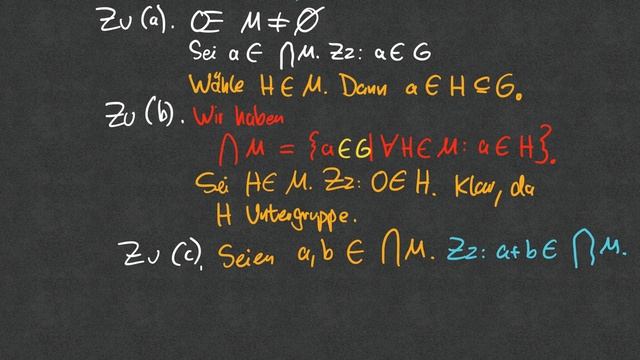 Zu (a). OE M ≠ ∅
Sei a ∈ ⋂M. Zz: a ∈ G
Wähle H ∈ M. Dann a ∈ H ⊆ G.
Zu (b). Wir haben
⋂M = {a ∈ G | ∀H ∈ M: a ∈ H}.
Sei H ∈ M. Zz: 0 ∈ H. Klar, da
H Untergruppe.
Zu (c). Seien a, b ∈ ⋂M. Zz: a+b ∈ ⋂M.